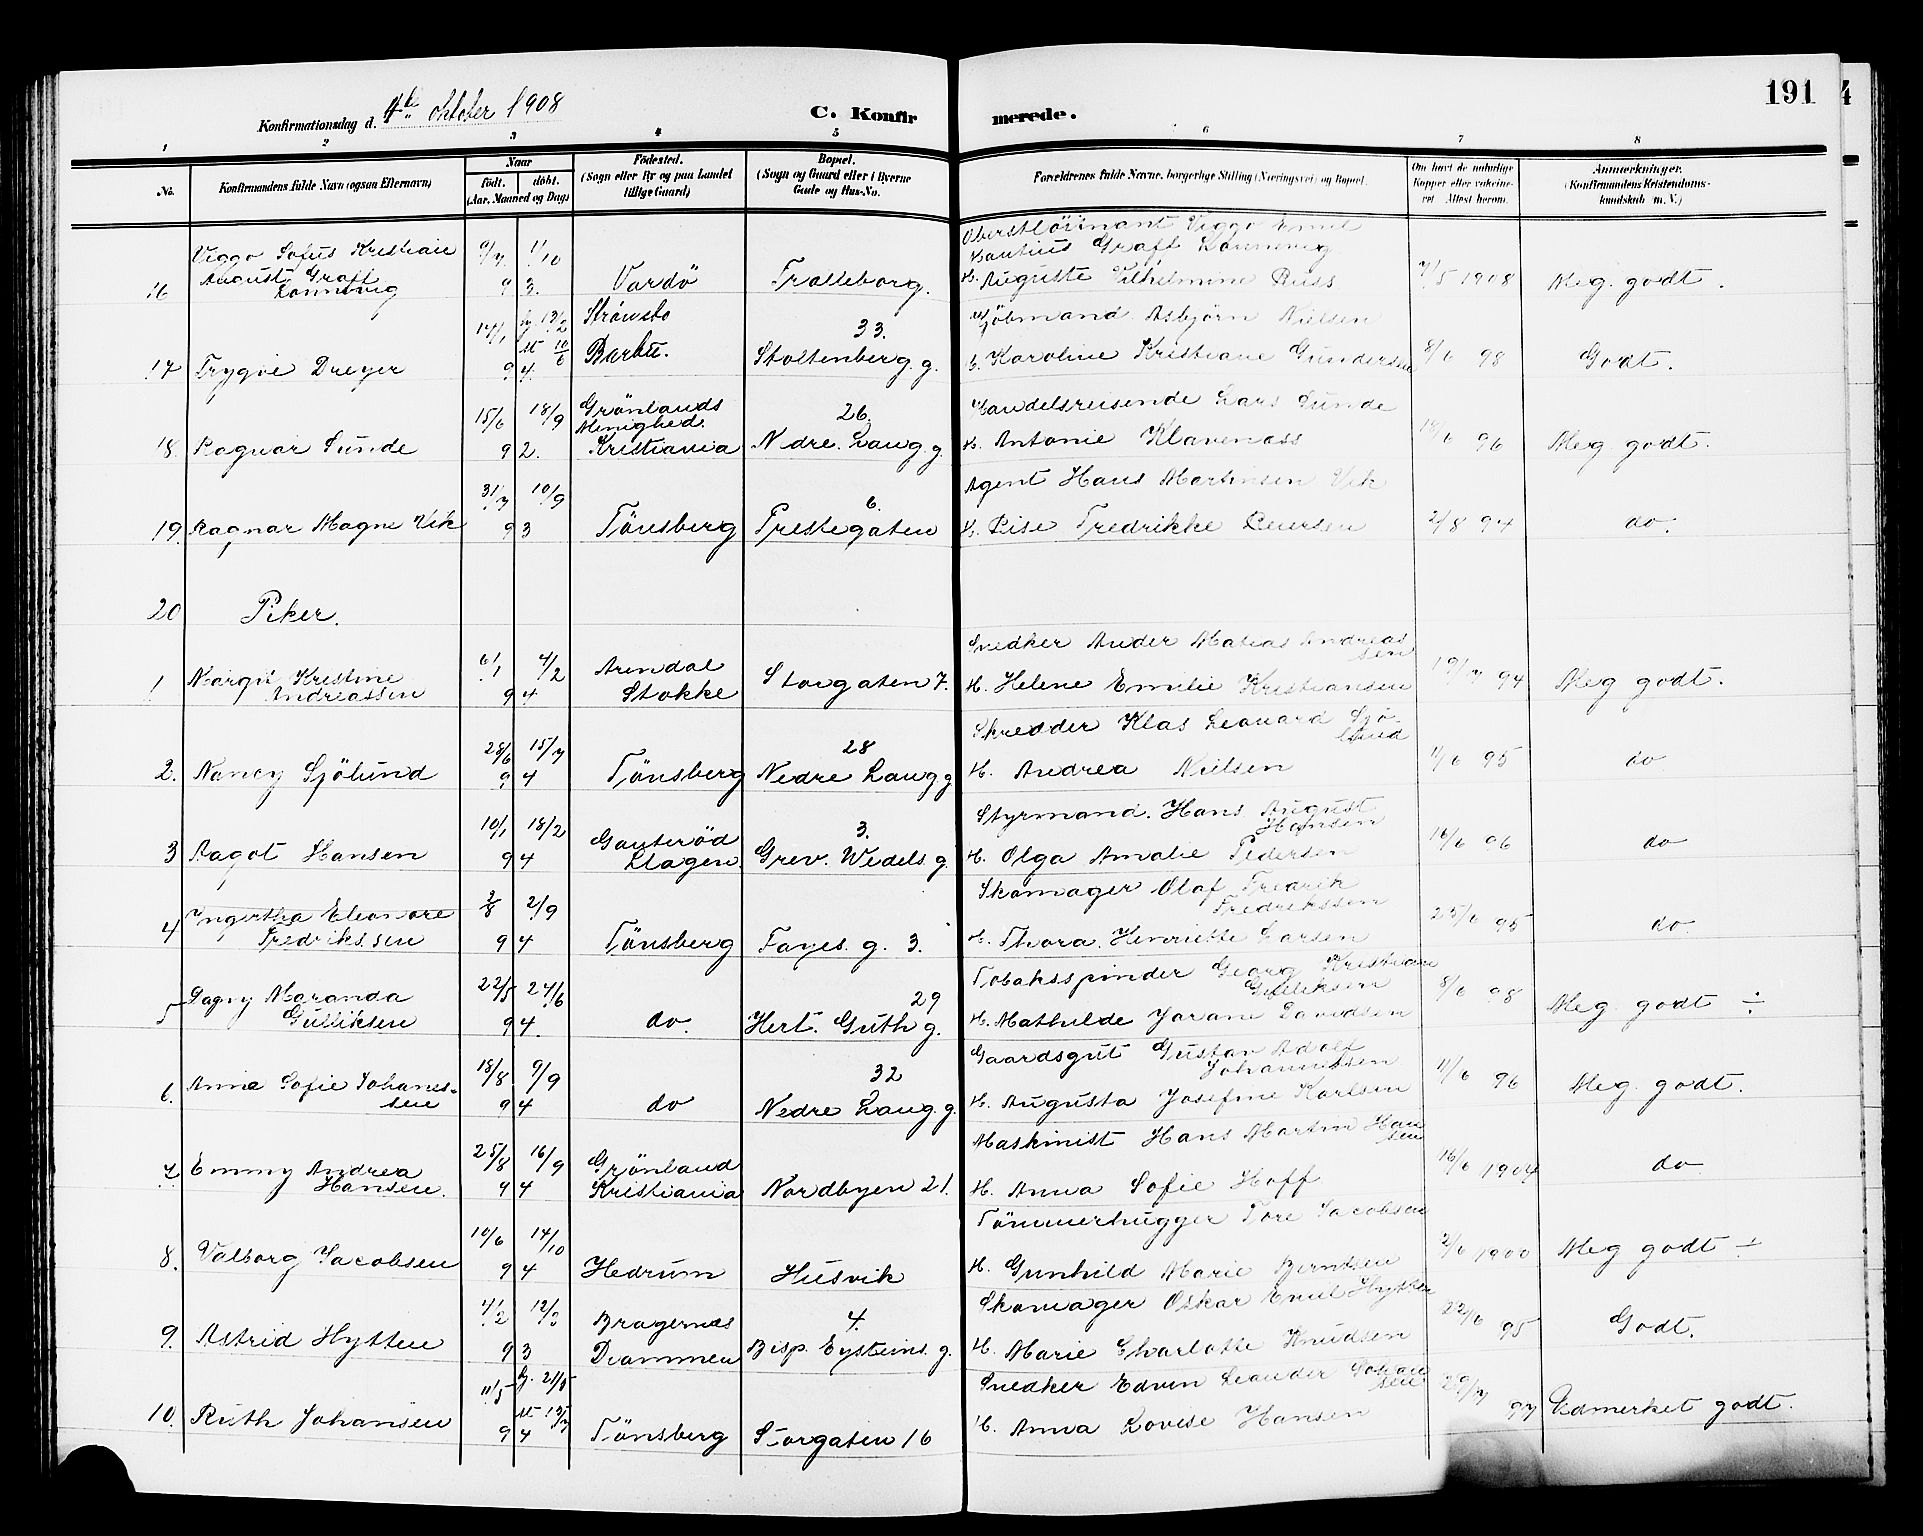 191
Konfirmationsdag d. 4de oktober 1908
C. Konfirmerede.
1 2 3 4 5 6 7 8
No. Konfirmandens fulde Navn (ogsaa Efternavn) Naar födt. döbt. (Aar, Maaned og Dag) Födested. (Sogn eller By og paa Landet tillige Gaard) Bopæl. (Sogn og Gaard eller i Byerne Gade og Hus-No. Forældrenes fulde Navne, borgerlige Stilling (Næringsvei) og Bopæl. Om havt de naturlige Kopper eller vakcineret. Attest herom. Anmerkninger. (Konfirmandens Kristendomskundskab m. V.)
Viggo Sofus Kristian 9/7 1/10 Oberstløitnant Viggo Emil
August Graff Graff
16 9 3. Vardö Trælleborg. H. Auguste Vilhelmine Russ 7/5 1908 Meg. godt.
14/1 Strömsbo 33. Kjöbmand Asbjörn Nielsen
17 Trygve Dreyer 9 4. Barbu. Stoltenberg. g. Karoline Kristiane Gundersen 8/6 98 Godt.
15/6 18/9 Grönlands Menighed. 26. Handelsreisende Lars Sunde
18. Ragnar Sunde 9 2. Kristiania Nedre. Lang. g. H. Antonie Klavenass 96 Meg godt.
31/7 10/9 6. Agent Hans Martinsen Vik
19. Ragnar Magne Vik 9 3 Tönsberg Prestegaten H. Fredrikke 2/8 94 do.
20 Piker.
6/1 4/2 Arendal Snedker Ander Matias Andreassen
1 Margit Kristine Andreassen 9 4 Stokke Storgaten 7. H. Helene Emilie Kristiansen 19/7 94 Meg godt.
28/6 15/7 28 Skredder Klas Leonard Sjölund
2. Nancy Sjölund 9 4 Tönsberg Nedre Lang g H. Andrea Nielsen 95 do
10/1 18/2 3. Styrmand. Hans August Hansen
3 Aagot Hansen 9 4 Slagen Grev. Wedels. g. H. Olga Amalie Pedersen 16/6 96 do
3/8 2/9 Skomager Olaf Fredrik Fredrikssen
4 Ingertha Eleonore Fredrikssen 9 4 Tönsberg Fayes. g. 3. H. Thora. Henriette Larsen 25/6 95 do.
22/5 24/6 29 Tobaksspinder Georg Kristian Gulliksen
5 Dagny Maranda Gulliksen 9 4. do. Hert. Guth g. H. Mathilde 8/6 98 Meg godt ÷
18/8 9/9 32 Gaardsgut Gustav Adolf Johannessen
6. Anna Sofie Johannes-sen 9 4 do Nedre Lang. g. H. Augusta Josefine Karlsen 11/6 96 Meg godt.
25/8 16/9 Grönland Maskinist Hans Martin Hansen
7. Emmy Andrea Hansen. 9 4 Kristiania Nordbyen 21. H. Anna Sofie Hoff 16/6 1904 do
10/6 14/10 Tömmerhugger Tore Jacobsen
8. Valborg Jacobsen 9 4 Hedrum Husvik H. Gunhild Marie Berntsen 2/6 1900 Meg godt ÷
4/2 Bragernes 4. Skomager Oskar Emil Hytten
9. Astrid Hytten 9 3 Drammen Bisp. Eysteins. g. H. Marie Charlotte Knudsen 22/6 95 Godt.
11/5 Snedker Edvin Leander Johansen
10. Ruth Johansen 9 4 Tönsberg Storgaten 16 H. Anna Lovise Hansen 29/7 97 Udmerket godt.